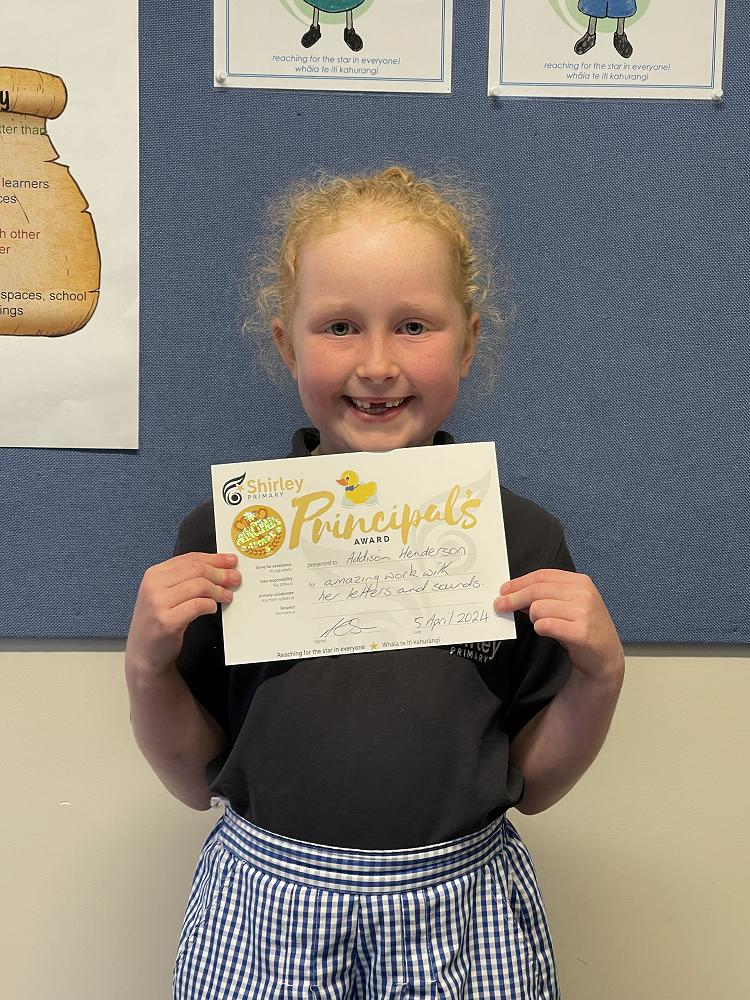 reaching for the star in everyone!
whāia te iti kahurangi
reaching for the star in everyone!
whāia te iti kahurangi
y
tter than
learners
ces
h other
er
spaces, school
ings
Shirley
PRIMARY
Principal's
AWARD
PRINCIPAL'S
AWARD
presented to Addison Henderson
for amazing work with
her letters and sounds.
Strive for excellence
Take responsibility
Actively collaborate
Respect
5 April 2024
Signed
Date
Reaching for the star in everyone Whāia te iti kahurangi
PRIMARY